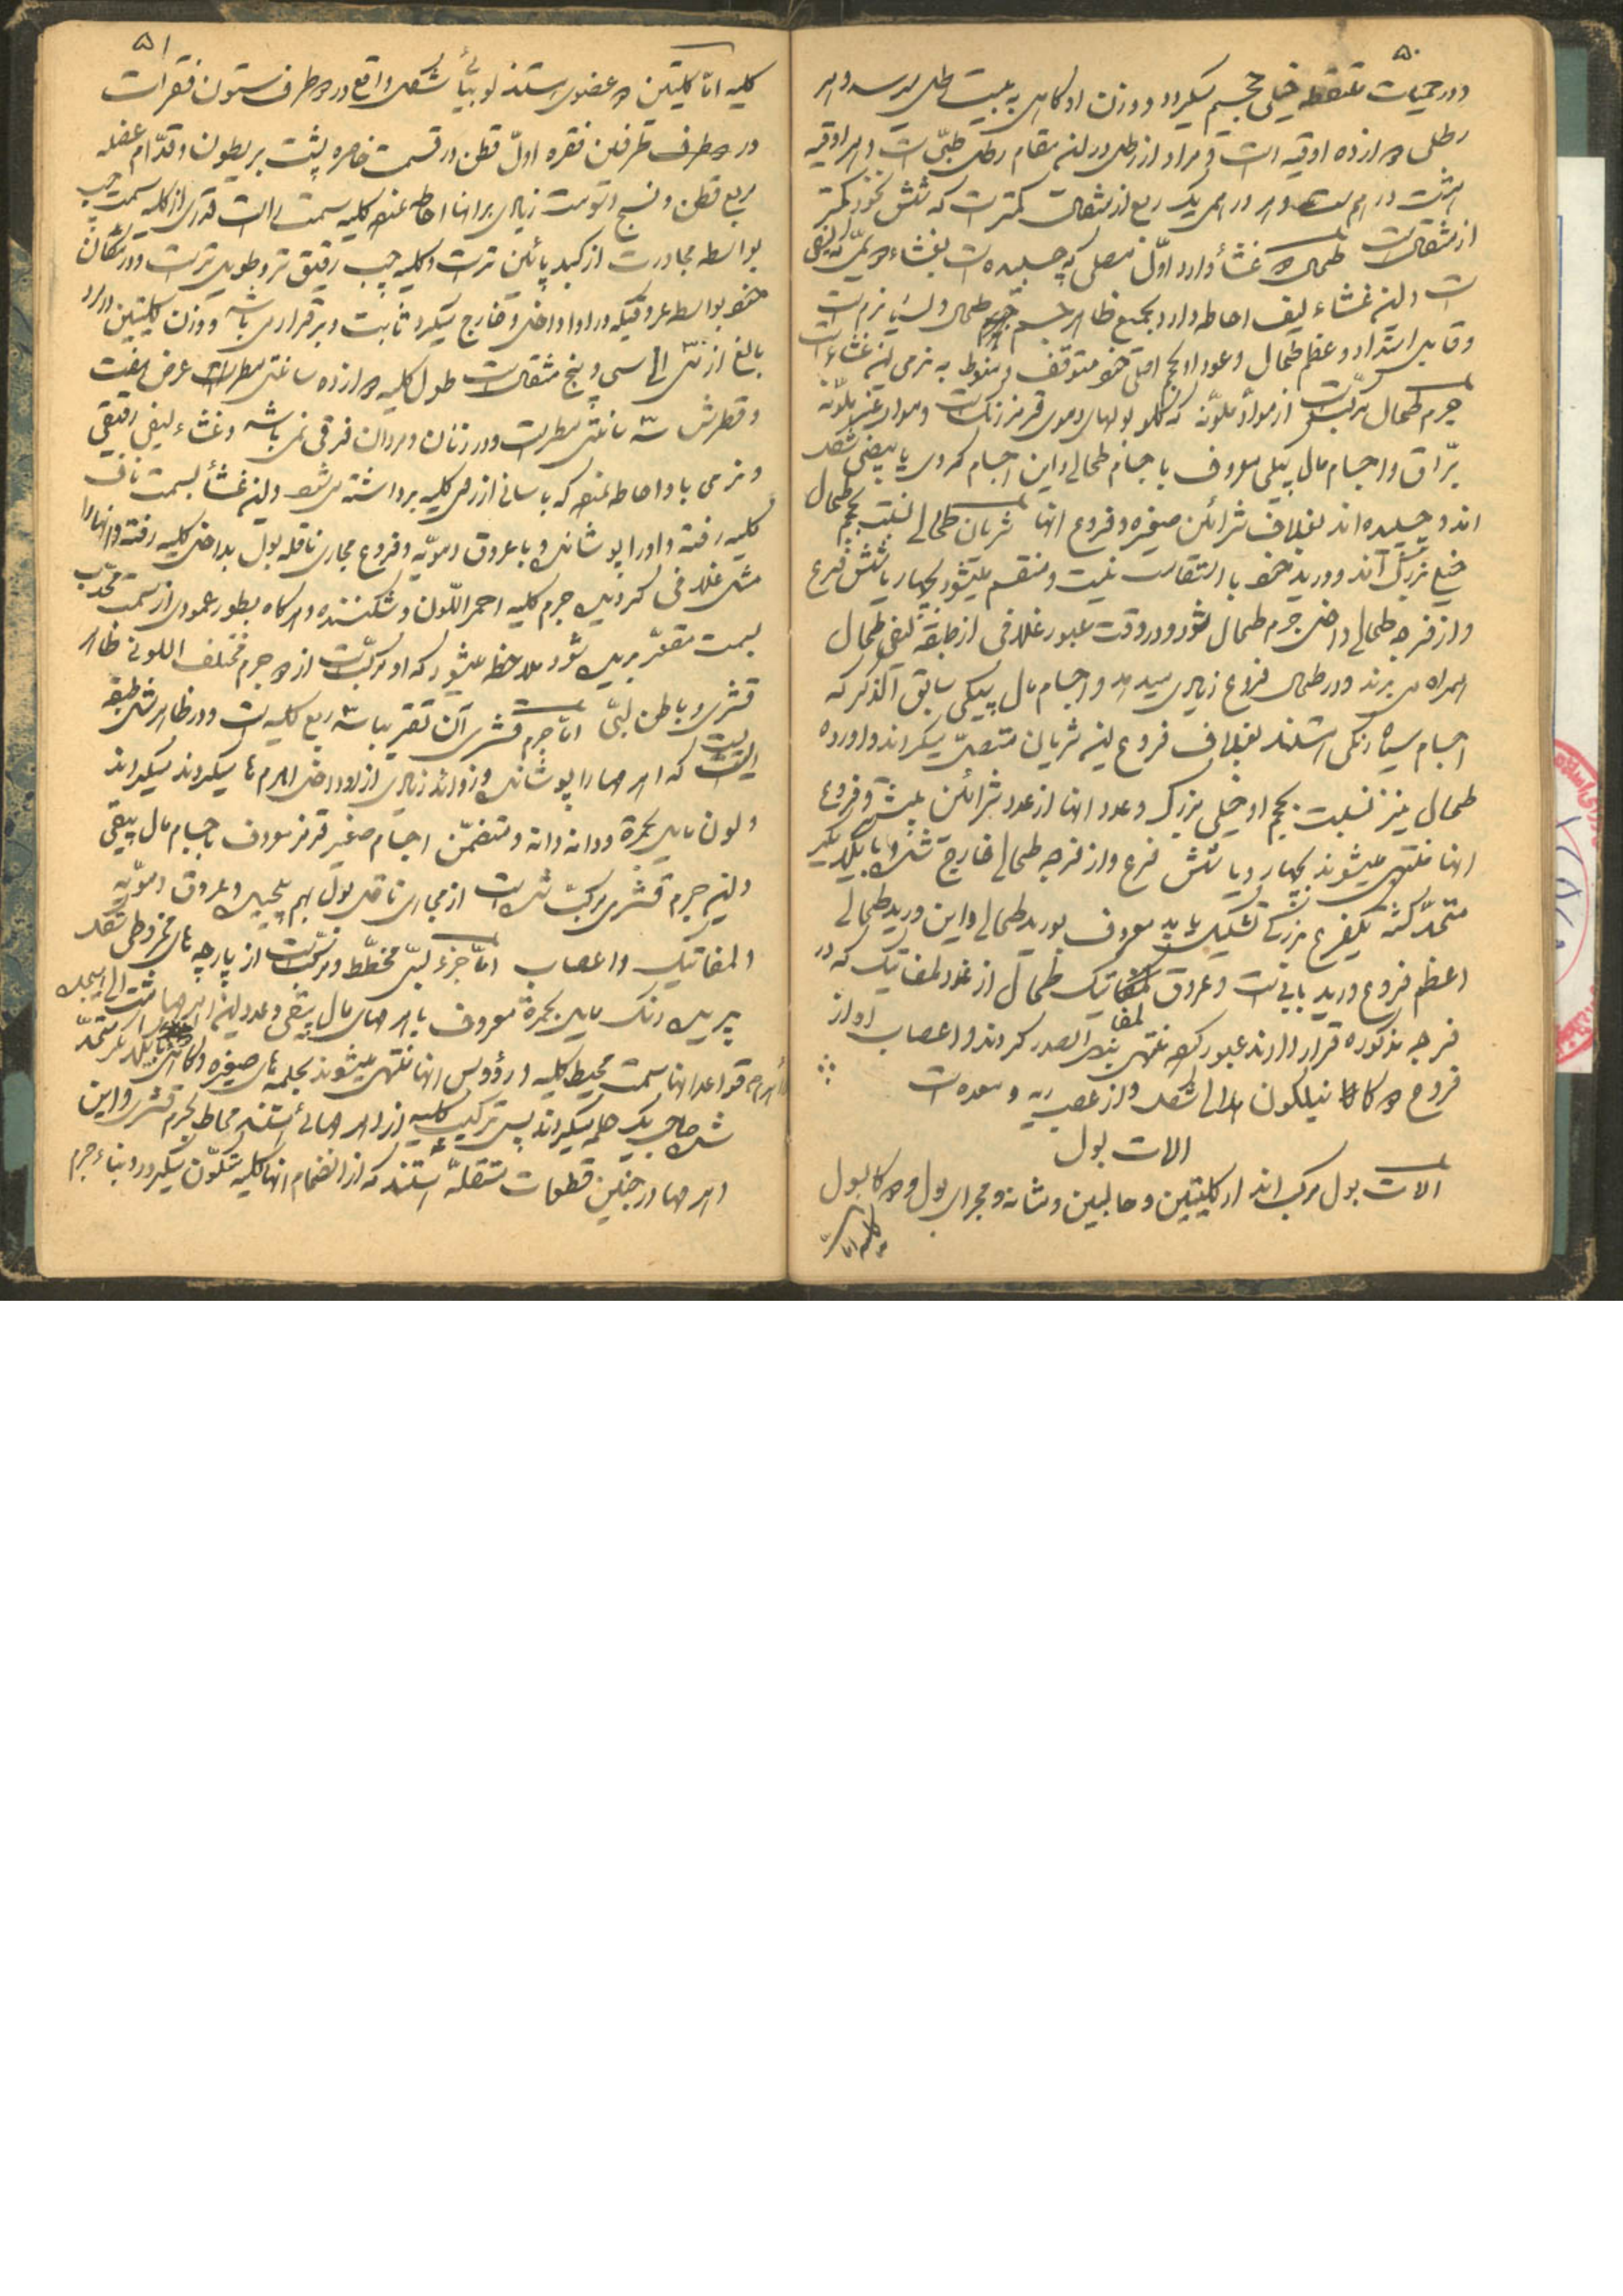 ۵۰
ودر حمیات متقطعه خیلی حجیم میگردد ووزن او کاهی به بیست رطل میرسد وهر
رطلی دوازده اوقیه است و مراد از رطل در این مقام رطل طبّی است وهر اوقیه
هشت درهم است وهر درهمی یک ربع از مثقال کمتر است که شش نخود کمتر
از مثقالست طحال دو غشأ دارد اوّل مصلی که چسبیده است بغشاء دویّم که لیفی
است واین غشاء لیف احاطه دارد بجمیع ظاهر جسم طحال و بسیار نرم است
وقابل امتداد وعظم طحال وعود او بحجم اصلی خود متوقف ومنوط به نرمی این غشاء است
جرم طحال مرکّبست از موادّ ملوّنه که کلوبولهای دموی قرمز رنگ است ومواد غیر ملوّنه
برّاق واجسام مال پیکی معروف باجسام طحالی واین اجسام کروی یا بیضی شکل
اند وچسبیده اند بغلاف شرائین صغیره وفروع انها شریان طحالی نسبت بحجم طحال
خیلی بزرگ اند وورید خود با التقاست نیست ومنقسم میشود بچهار یا شش فرع
واز فرجه طحالی داخل جرم طحال شود ودر وقت عبور غلافی از طبقه لیفی طحال
همراه می برند ودر طحال فروع زیادی میدهد واجسام مال پیکی سابق الذکر که
اجسام سیاه رنگی هستند بغلاف فروع این شریان متصل میگردند واورده
طحال نیز نسبت بحجم او خیلی بزرگ وعدد انها از عدد شرائین بیشتر وفروع
انها منتهی میشوند بچهار ویا شش فرع واز فرجه طحالی خارج شده با یکدیگر
متحد گشته یکفرع بزرگی تشکیل نماید معروف بورید طحالی واین ورید طحالی
اعظم فروع ورید بابیست وعروق لمفاتیک طحال از غدد لمفاتیک که در
فرجه مذکوره قرار دارند عبور کرده منتهی بقناة الصدر کردند واعصاب او از
فروع دو کانکلیون هلالی شکل واز عصب ریه و معده است
الات بول
الات بول مرکب اند از کلیتین وحالبین ومثانه ومجرای بول
کلیه اما
۵۱
کلیه امّا کلیتین دو عضوی هستند لوبیائی شکل واقع در دو طرف ستون فقرات
در دو طرف طرفین فقره اوّل قطن در قسمت خاصره پشت بریطون وقدّام عضله
مربع قطن ونسج دسومت زیادی بر انها احاطه نموده کلیه سمت راست قدری از کلیه سمت چپ
بواسطه مجاورت از کبد پائین تر است وکلیه چپ رقیق تر وطویل تر است ودر مکان
خود بواسطه عروقیکه در او داخل وخارج میگردد ثابت وبرقرار می باشد ووزن کلیتین در مرد
بالغ از سی الی سی و پنج مثقالست طول کلیه دوازده سانتی مطر است عرض هفت
وقطرش سه سانتی مطر است ودر زنان ومردان فرقی نمی باشد وغشاء لیفی رقیقی
ونرمی باو احاطه نموده که باسانی از روی کلیه برداشته می شود واین غشأ بسمت ناف
کلیه رفته واورا پوشانده وبا عروق دمویّه وفروع مجاری ناقله بول بداخل کلیه رفته وانها را
مثل غلافی کردیده جرم کلیه احمر اللّون وشکننده وهر کاه بطور عمودی از سمت محدّب
بسمت مقعّر بریده شود ملاحظه میشود که او مرکّبست از دو جرم مختلف اللون ظاهر
قشری وباطن لبّی امّا جرم قشری آن تقریبا سه ربع کلیه است ودر ظاهر مثل طبقه
ایست که اهرمها را پوشانده وزوائد زیادی از او در داخل اهرم ها میگردند
ولون مایل بحمرة ودانه دانه ومتضمّن اجسام صغیر قرمز معروف باجسام مال پیقی
واین جرم قشری مرکّب شده است از مجاری ناقل بول بهم پیچیده وعروق دمویّه
المفاتیک واعصاب امّا جزء لبّی مخطّط ومرکبست از پارچه های مخروطی شکل
پریده رنگ مایل بحمرة معروف باهرمهای مال پیقی وعدد این اهرمها هشت الی هیجده
قواعد انها بسمت محیط کلیه ورؤوس انها منتهی میشوند بحلمه های صغیره وکاهی با یکدیگر متحد
شده صاحب یک حلمه میگردند پس ترکیب کلیه از اهرمهائی هستند محاط بجرم قشری واین
اهرمها در جنین قطعات مستقلّه هستند که از انضمام انها کلیه متکوّن میگردد وبناء جرم